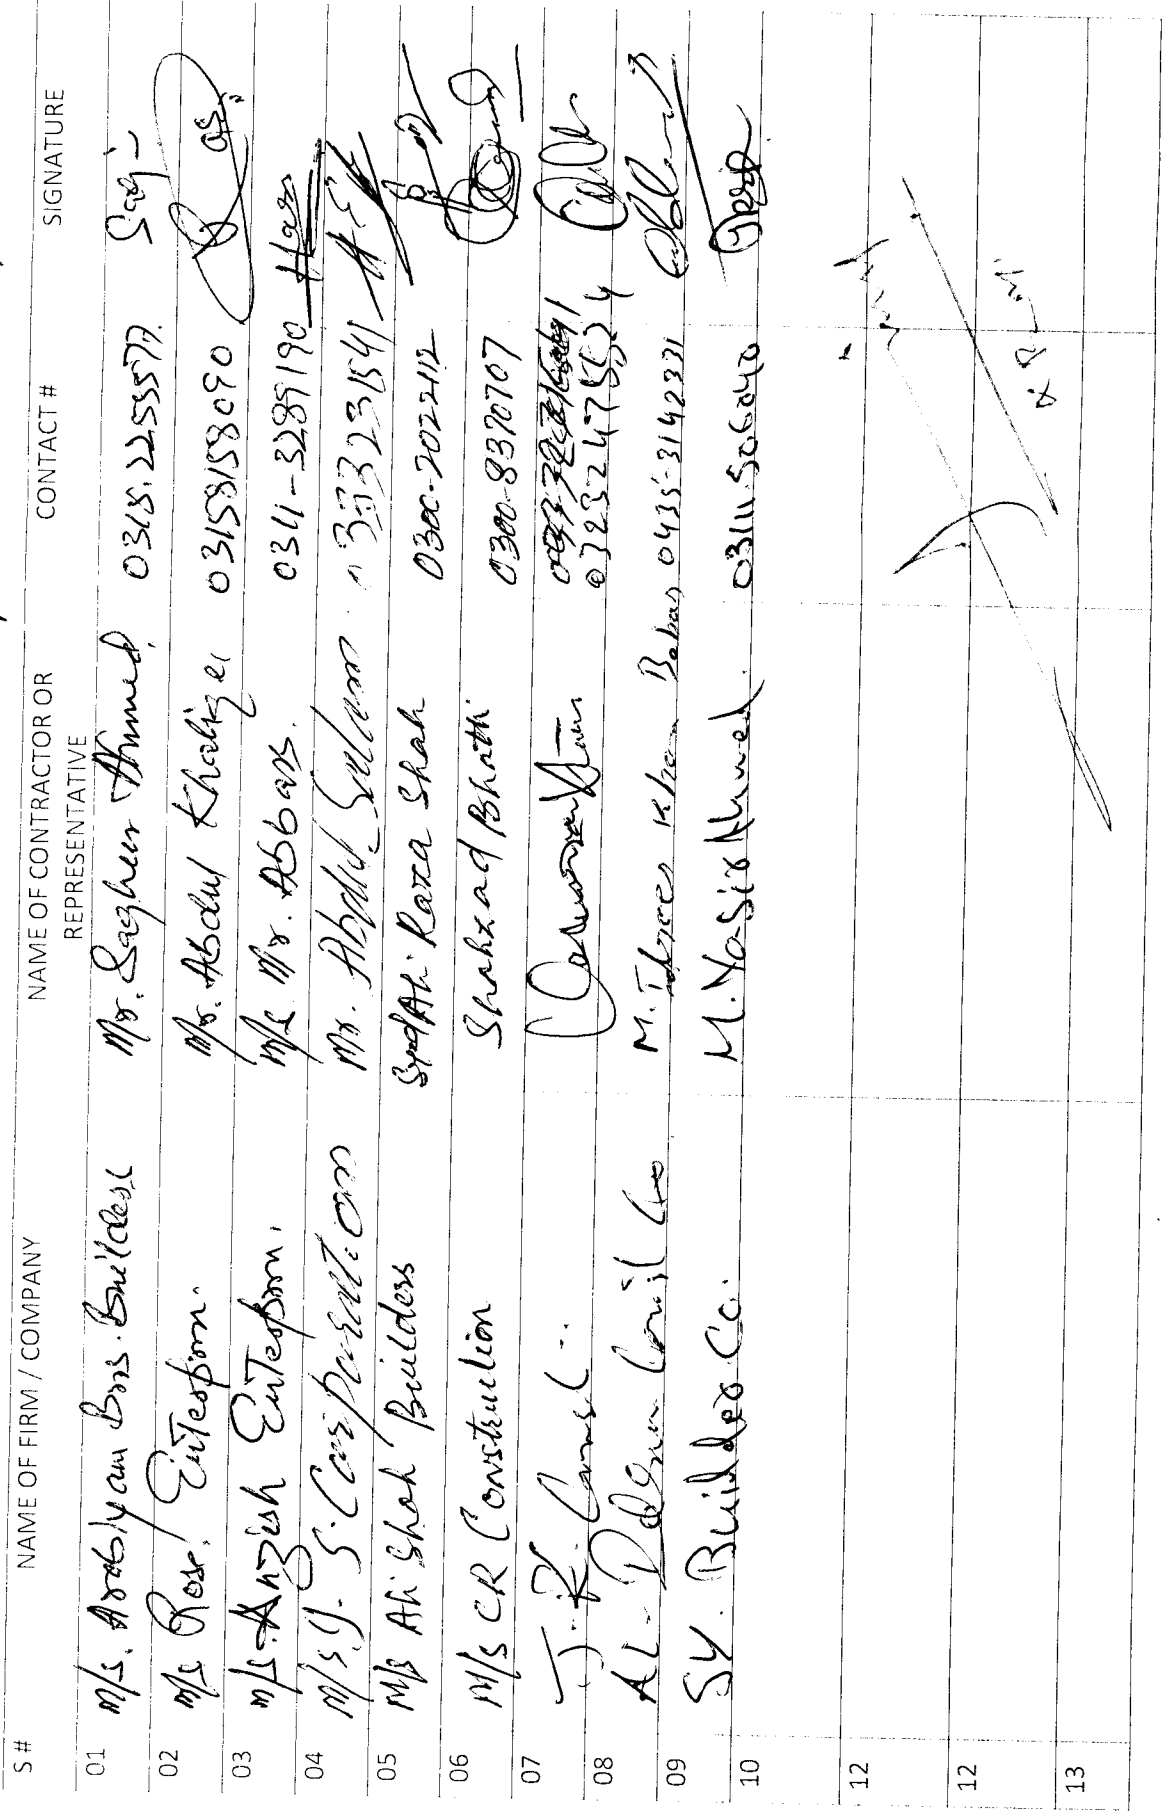 S # NAME OF FIRM / COMPANY NAME OF CONTRACTOR OR REPRESENTATIVE CONTACT # SIGNATURE
01 M/s. Arabiyan Bros. Builders Mr. Sagheer Ahmed 0315.2255577
02 M/s Rose Enterprin. Mr. Abdul Khalique 03158158090
03 M/s. Anzish Enterprin. M/s Mr. Abbas. 0311-3289190
04 M/s. J. S. Corporation Mr. Abdul Salam 0333231541
05 M/s Ali Shah Builders Syed Ali Raza Shah 0300-2022112
06 M/s CR Construction Shahzad Bhatti 0300-8370707
07 J. R.
08 AL- M. Khan 0435-3142331
09 SY. Builder Co. M. Yasir Ahmed. 03111506040
10
12
12
13